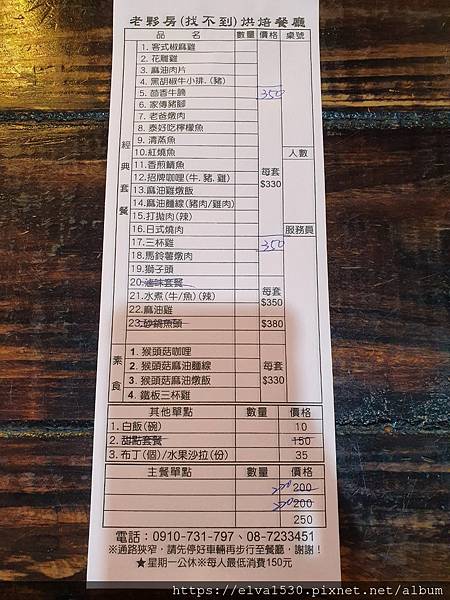 老夥房(找不到)烘焙餐廳
品 名 數量 價格 桌號
經典套餐
1. 客式椒麻雞
2. 花雕雞
3. 麻油肉片
4. 黑胡椒牛小排.(豬)
5. 茴香牛腩 350
6. 家傳豬腳
7. 老爸燉肉
8. 泰好吃檸檬魚
9. 清蒸魚
10.紅燒魚 人數
11.香煎鯛魚 每套
12.招牌咖哩(牛.豬.雞) $330
13.麻油雞燉飯
14.麻油麵線(豬肉/雞肉)
15.打拋肉(辣)
16.日式燒肉 服務員
17.三杯雞 350
18.馬鈴薯燉肉
19.獅子頭
20.滷味套餐 每套
21.水煮(牛/魚)(辣) $350
22.麻油雞
23.砂鍋魚頭 $380
素食
1. 猴頭菇咖哩
2. 猴頭菇麻油麵線 每套
3. 猴頭菇麻油燉飯 $330
4. 鐵板三杯雞
其他單點 數量 價格
1. 白飯(碗) 10
2. 甜點套餐 150
3. 布丁(個)/水果沙拉(份) 35
主餐單點 數量 價格
200
200
250
電話：0910-731-797、08-7233451
※通路狹窄，請先停好車輛再步行至餐廳，謝謝！
★星期一公休※每人最低消費150元
https://elva1530.pixnet.net/album